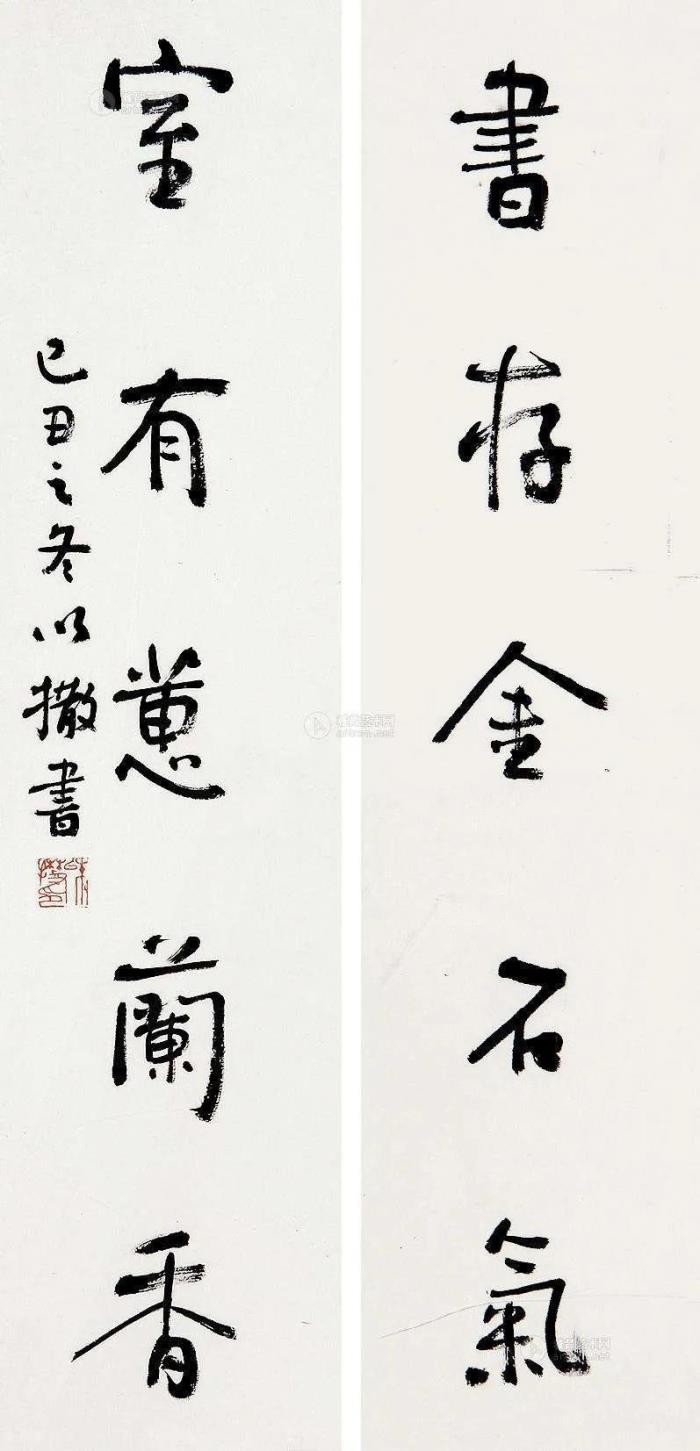 書存金石氣
室有蕙蘭香
己丑之冬以撒書